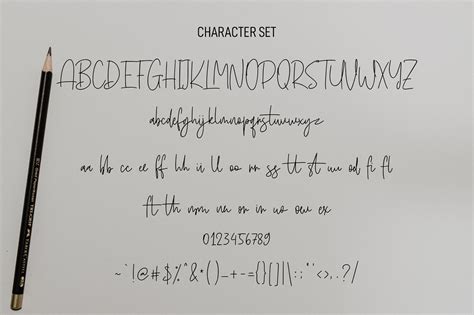 CHARACTER SET
ABCDEFGHIJKLMNOPQRSTUVWXYZ
abcdefghijklmnopqrstuvwxyz
aa bb cc ee ff hh ii ll oo rr ss tt st ut od fi fl
ft th nm nn or in uo ou ex
0123456789
~`!@#$%^&*()_-+-={}[]|\:;"'<>,.?/